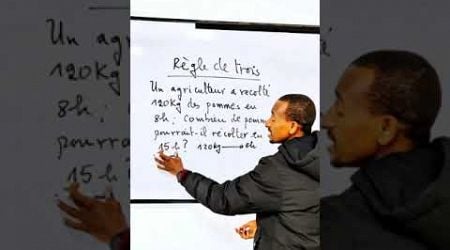 Règle de trois
Un agriculteur a recolté
120Kg des pommes en
8h; Combien de pomm
pourrait-il récolter en
15h? 120kg → 8h
Un
120Kg
8h;
pourra
15 h